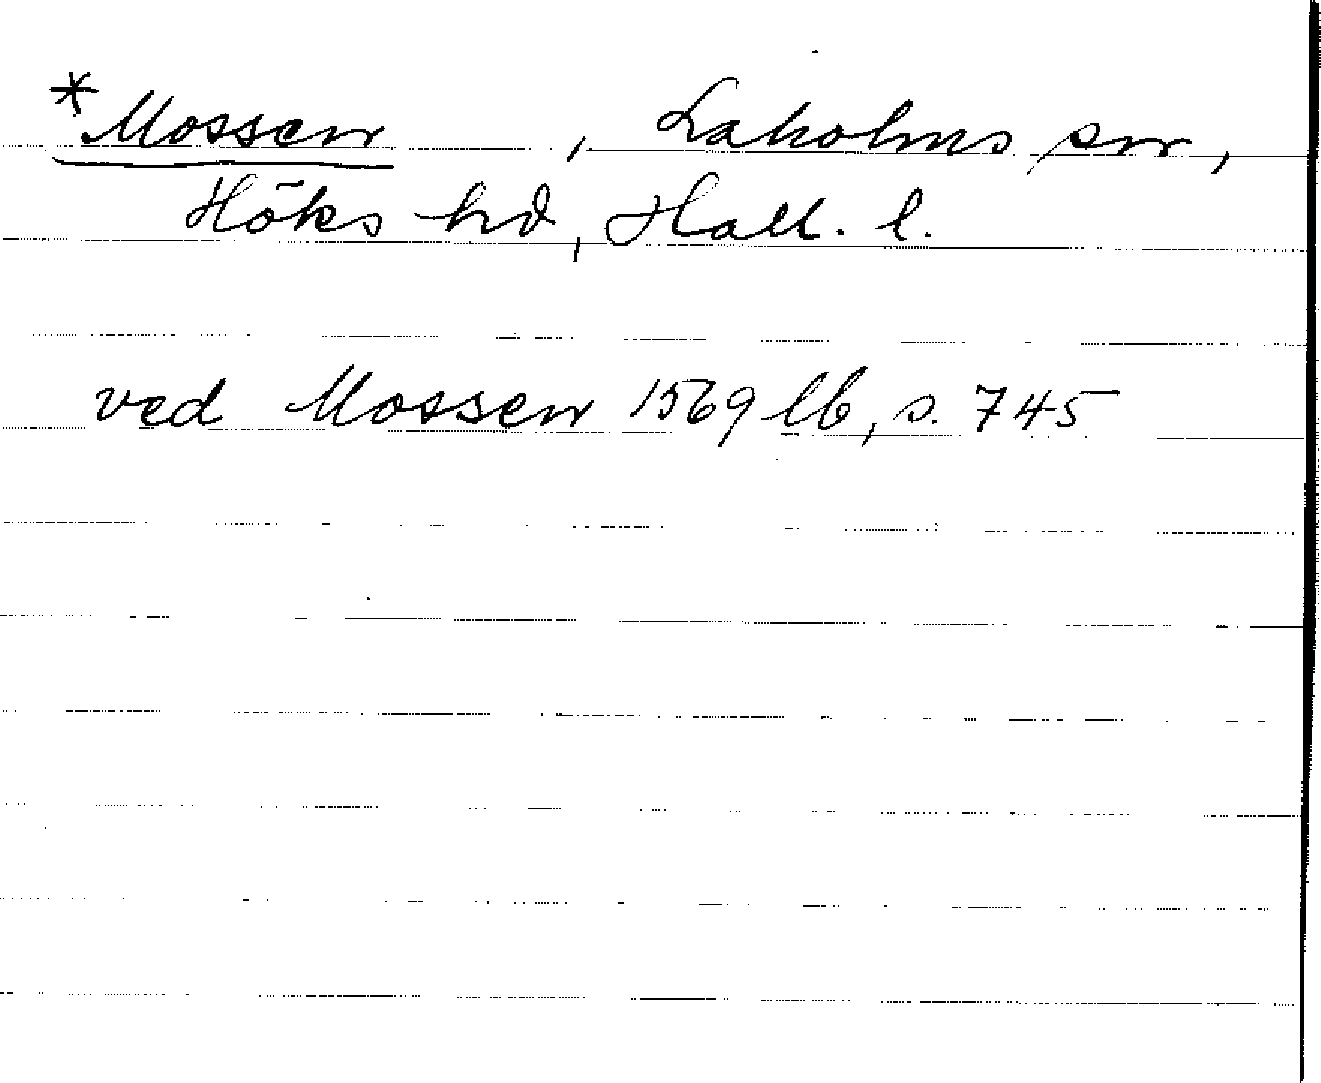 *Mossen , Laholms sn,
Höks hd, Hall. l.
ved Mossen 1569 lb, s. 745